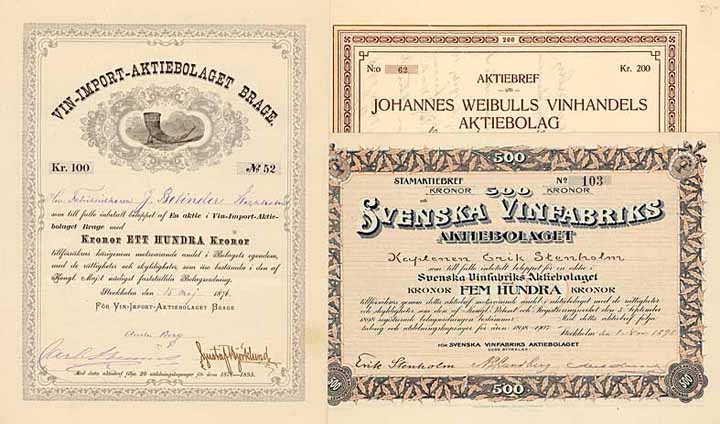 VIN-IMPORT-AKTIEBOLAGET BRAGE.
Kr. 100 № 52
J. Bolinder
som till fullo inbetalt beloppet af En aktie i Vin-Import-Aktie-
bolaget Brage med
Kronor ETT HUNDRA Kronor
tillförsäkras härigenom motsvarande andel i Bolagets egendom,
med de rättigheter och skyldigheter, som äro bestämda i den af
Kongl. Maj:t nådigst fastställda Bolagsordning.
Stockholm den 15 Maj 1876.
FÖR VIN-IMPORT-AKTIEBOLAGET BRAGE
Gustaf Björklund
Med detta aktiebref följa 20 utdelningskuponger för åren 1876-1895.
200
N:o 62 Kr. 200
AKTIEBREF
JOHANNES WEIBULLS VINHANDELS
AKTIEBOLAG
500
STAMAKTIEBREF № 103
KRONOR 500 KRONOR
SVENSKA VINFABRIKS
AKTIEBOLAGET
Kaptenen Erik Stenholm
som till fullo inbetalt beloppet för en aktie i
Svenska Vinfabriks-Aktiebolaget
KRONOR FEM HUNDRA KRONOR
tillförsäkras genom detta aktiebref motsvarande andel i aktiebolaget med de rättigheter
och skyldigheter som den af Kongl. Patent och Registreringsverket den 5 September
1898 registrerade bolagsordningen bestämmer. Med detta aktiebref följa
talong och utdelningskuponger för åren 1898-1907. Stockholm den 1 Nov. 1898
FÖR SVENSKA VINFABRIKS AKTIEBOLAGET
DESS STYRELSE:
Erik Stenholm
500 500 500